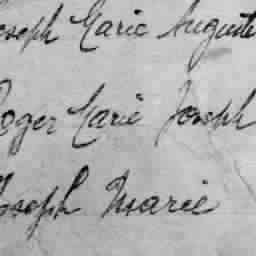 Joseph Marie Auguste
Roger Marie Joseph
Joseph Marie